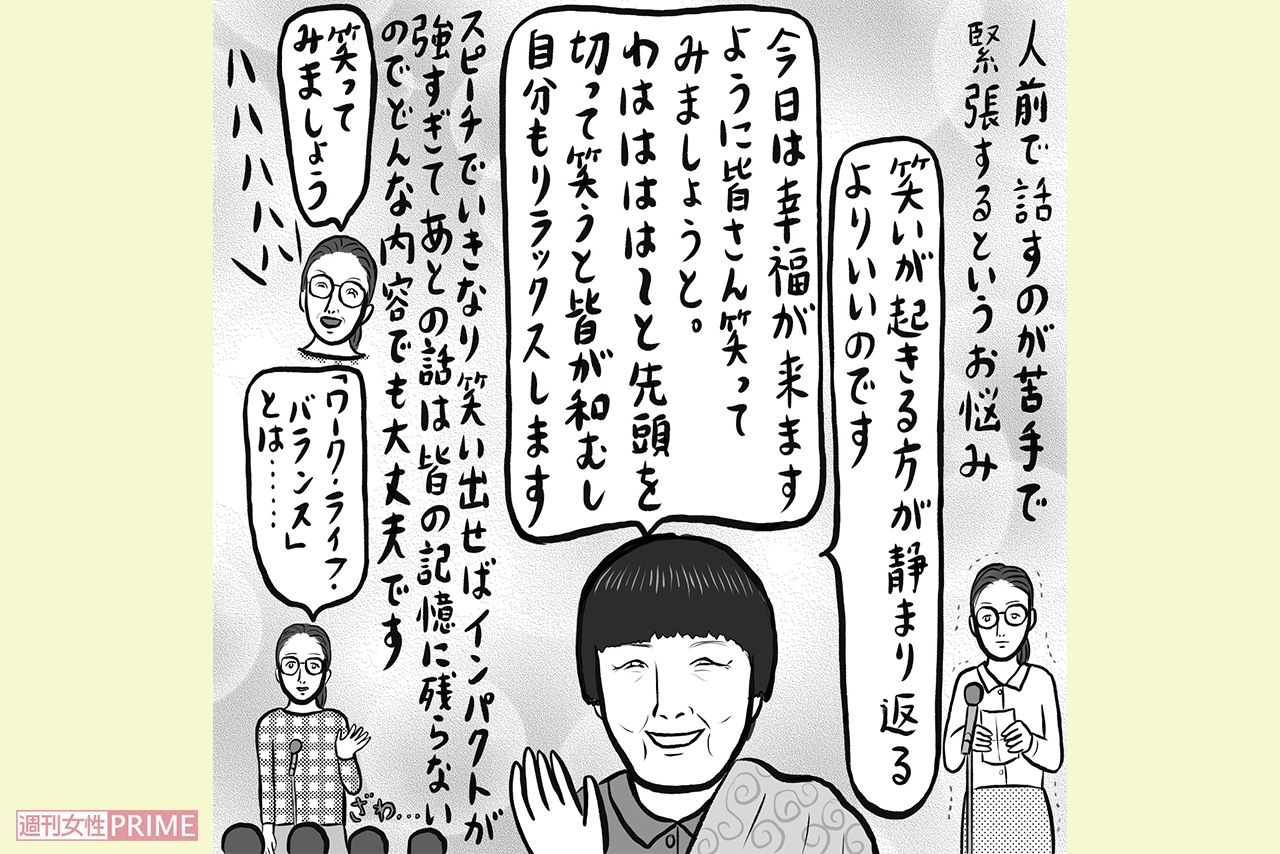 人前で話すのが苦手で
緊張するというお悩み
笑いが起きる方が静まり返る
よりいいのです
今日は幸福が来ます
ように皆さん笑って
みましょうと。
わはははは〜と先頭を
切って笑うと皆が和むし
自分もリラックスします
スピーチでいきなり笑い出せばインパクトが
強すぎてあとの話は皆の記憶に残らない
のでどんな内容でも大丈夫です
笑って
みましょう
ハハハハハ
「ワーク・ライフ・
バランス」
とは………
ざわ…
週刊女性PRIME